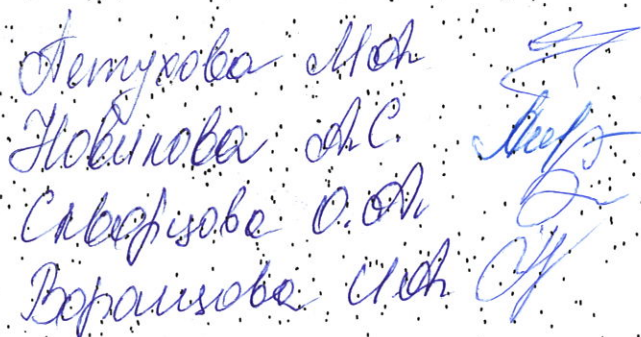 Петухова М.А.
Новикова А.С.
Скворцова О.А.
Воронцова И.А.